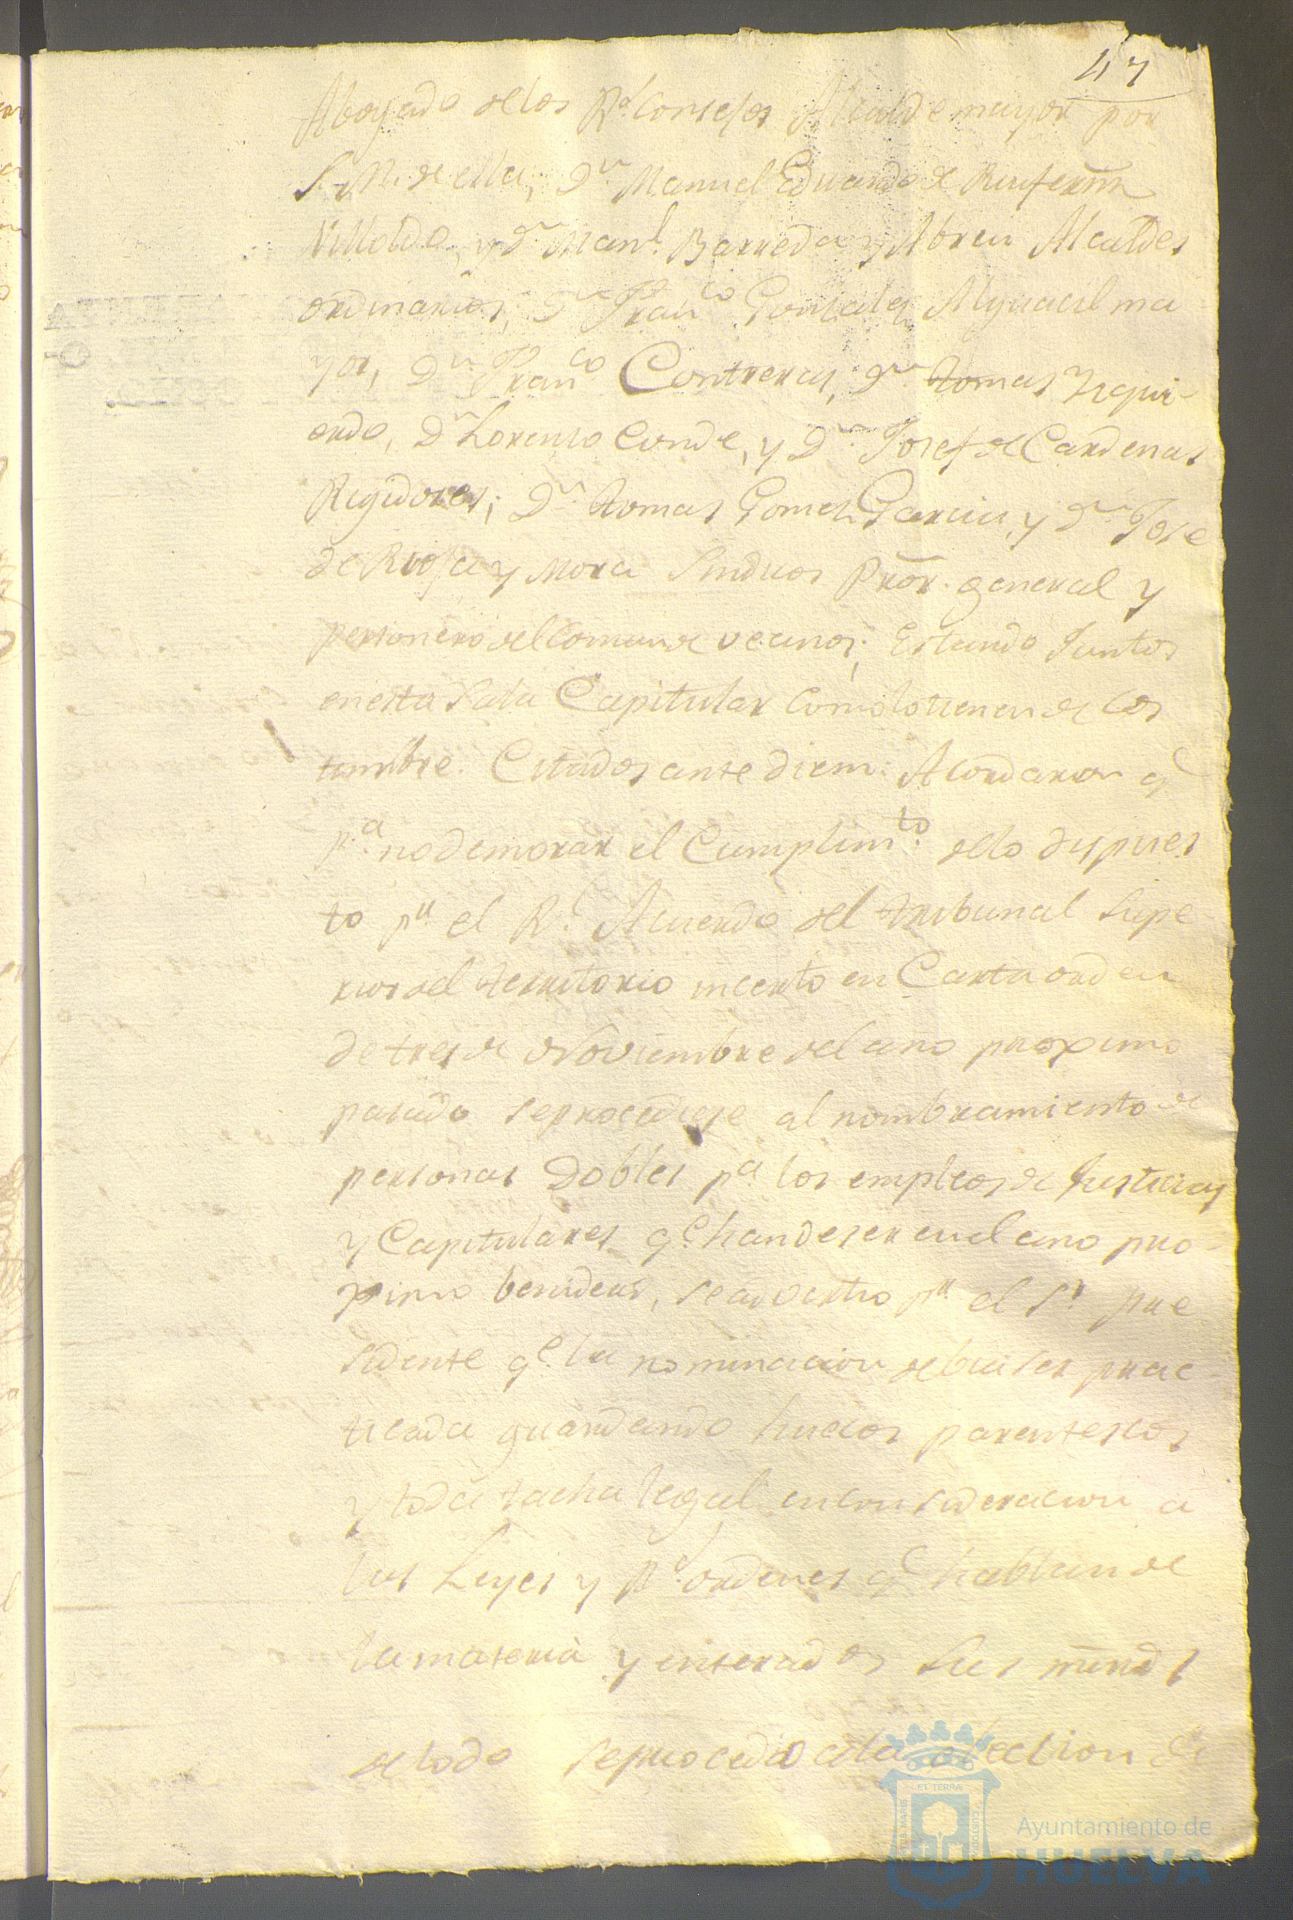 47
Abogado delos Rs. Consejos Alcalde mayor por
S. M. de ella, Dn. Manuel Eduardo de
Villoldo, y Dn. Manl. Barreda y Abreu Alcaldes
ordinarios, Dn. Franco. Gonzalez Alguacil ma
yor, Dn. Franco. Contreras, Dn. Tomas Yzqui-
erdo, Dn. Lorenzo Conde, y Dn. Josef de Cardenas
Regidores; Dn. Tomas Gomez Garcia, y Dn. Jose
de Rioja y Mora Sindicos Pror. general y
personero del Comun de vecinos; Estando Juntos
en esta Sala Capitular como lo tienen de cos
tumbre. Citados ante diem: Acordaron qe.
pa. no demorar el Cumplimto. de lo dispues
to pr. el Rl. Acuerdo del tribunal Supe-
rior del territorio incerto en Carta orden
de tres de Noviembre del ano proximo
pasado se procediese al nombramiento de
personas Dobles pa. los empleos de Justicias
y Capitulares qe. han de ser en el ano pro-
ximo benidero, se advertio pr. el Sr. pre
sidente qe. la nominacion debia ser prac-
ticada guardando huecos parentescos
y toda tacha legal en consideracion a
las Leyes y Rs. ordenes qe. hablan de
la materia y enterados Sus mrds
de todo se procedio a la eleccion de
ET TERRÆ
Ayuntamiento de
HUELVA